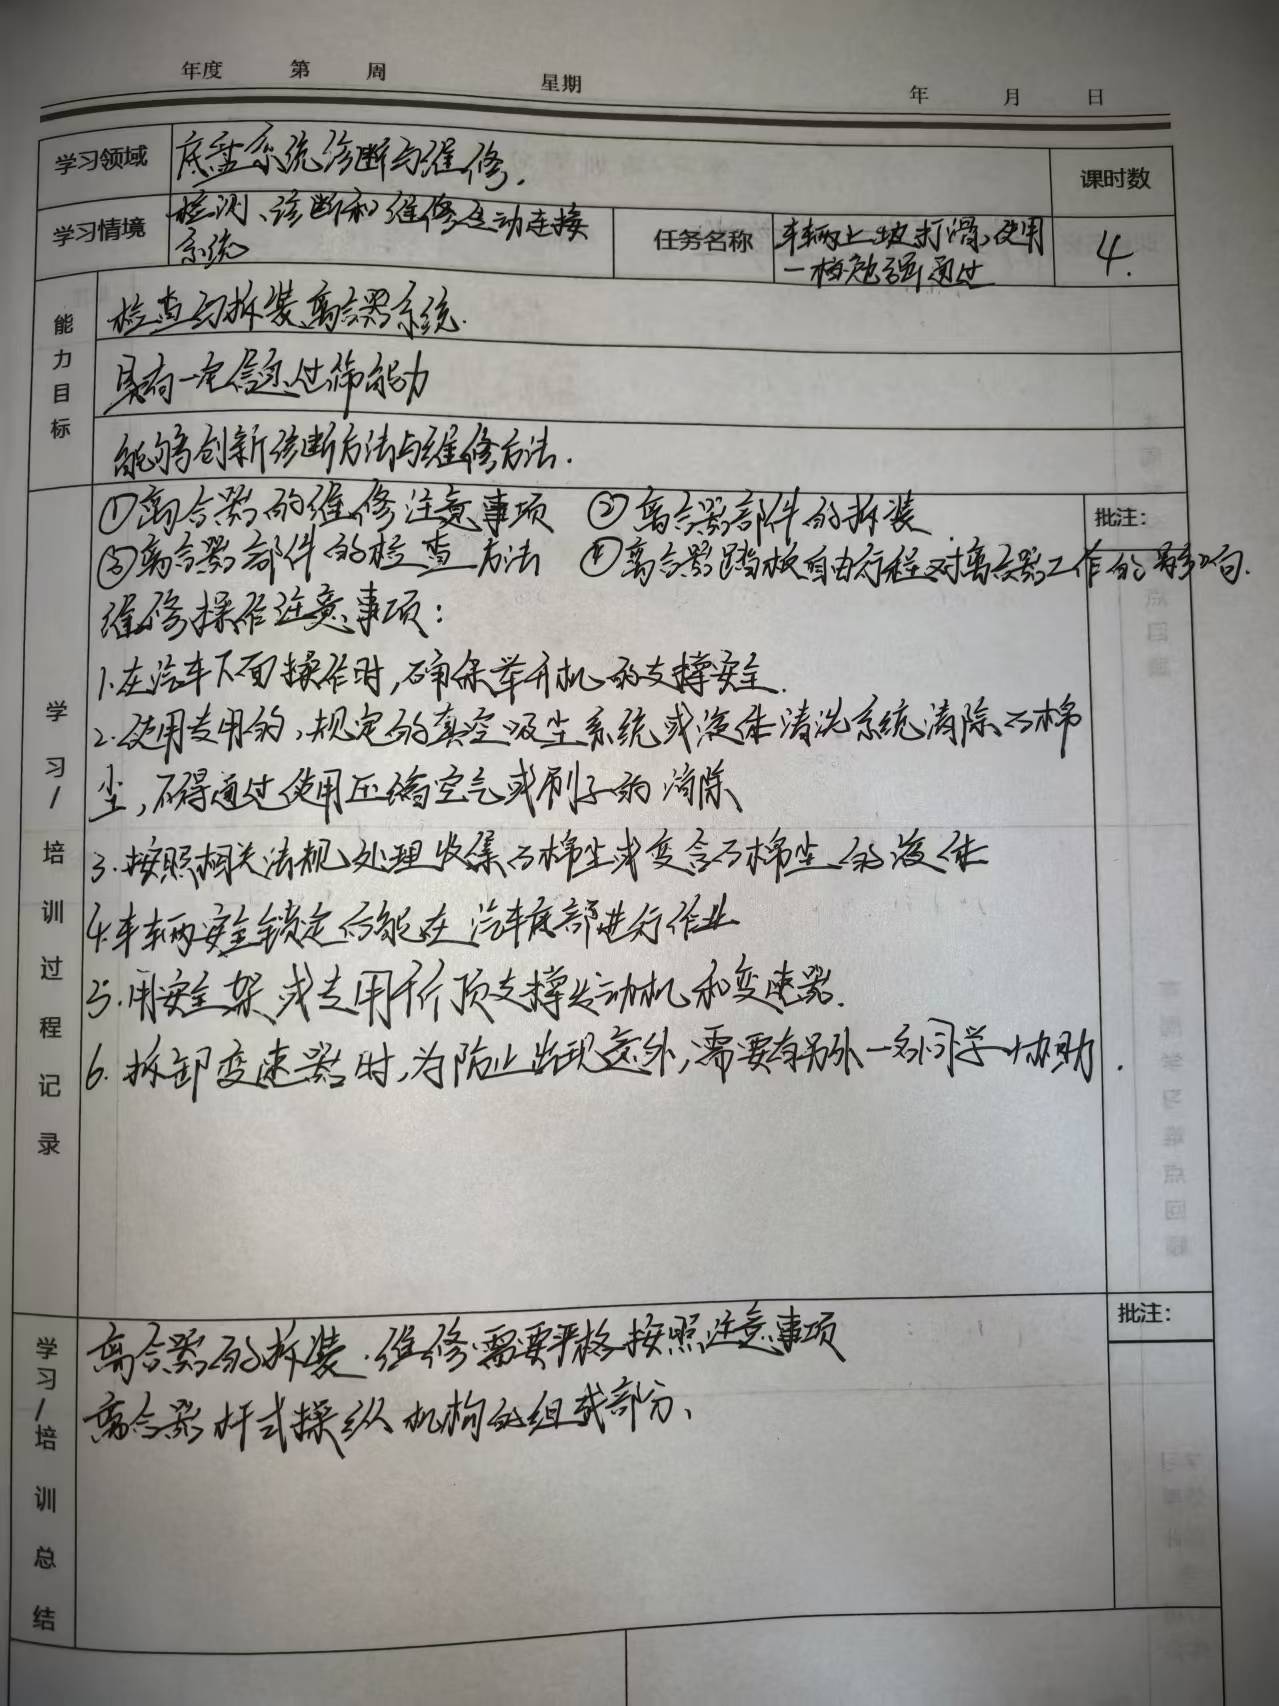 年度 第 周 星期 年 月 日
学习领域 底盘系统诊断与维修. 课时数
学习情境 检测、诊断和维修运动连接
系统
任务名称 车辆上坡打滑,使用
一档勉强通过
4.
能力目标
检查与拆装离合器系统.
具有一定信息过滤能力
能够创新诊断方法与维修方法.
学习/培训过程记录
①离合器的维修注意事项 ②离合器部件的拆装
③离合器部件的检查方法 ④离合器踏板自由行程对离合器工作的影响.
批注:
维修操作注意事项:
1.在汽车下面操作时,确保举升机的支撑安全.
2.使用专用的,规定的真空吸尘系统或液体清洗系统清除石棉
尘,不得通过使用压缩空气或刷子的清除
3.按照相关法规处理收集石棉尘或变含石棉尘的液体
4.车辆安全锁定后能在汽车底部进行作业
5.用安全架或专用千斤顶支撑发动机和变速器.
6.拆卸变速器时,为防止出现意外,需要有另外一名同学协助.
学习/培训总结
离合器的拆装.维修.需要严格按照注意事项
离合器杆式操纵机构的组成部分、
批注: